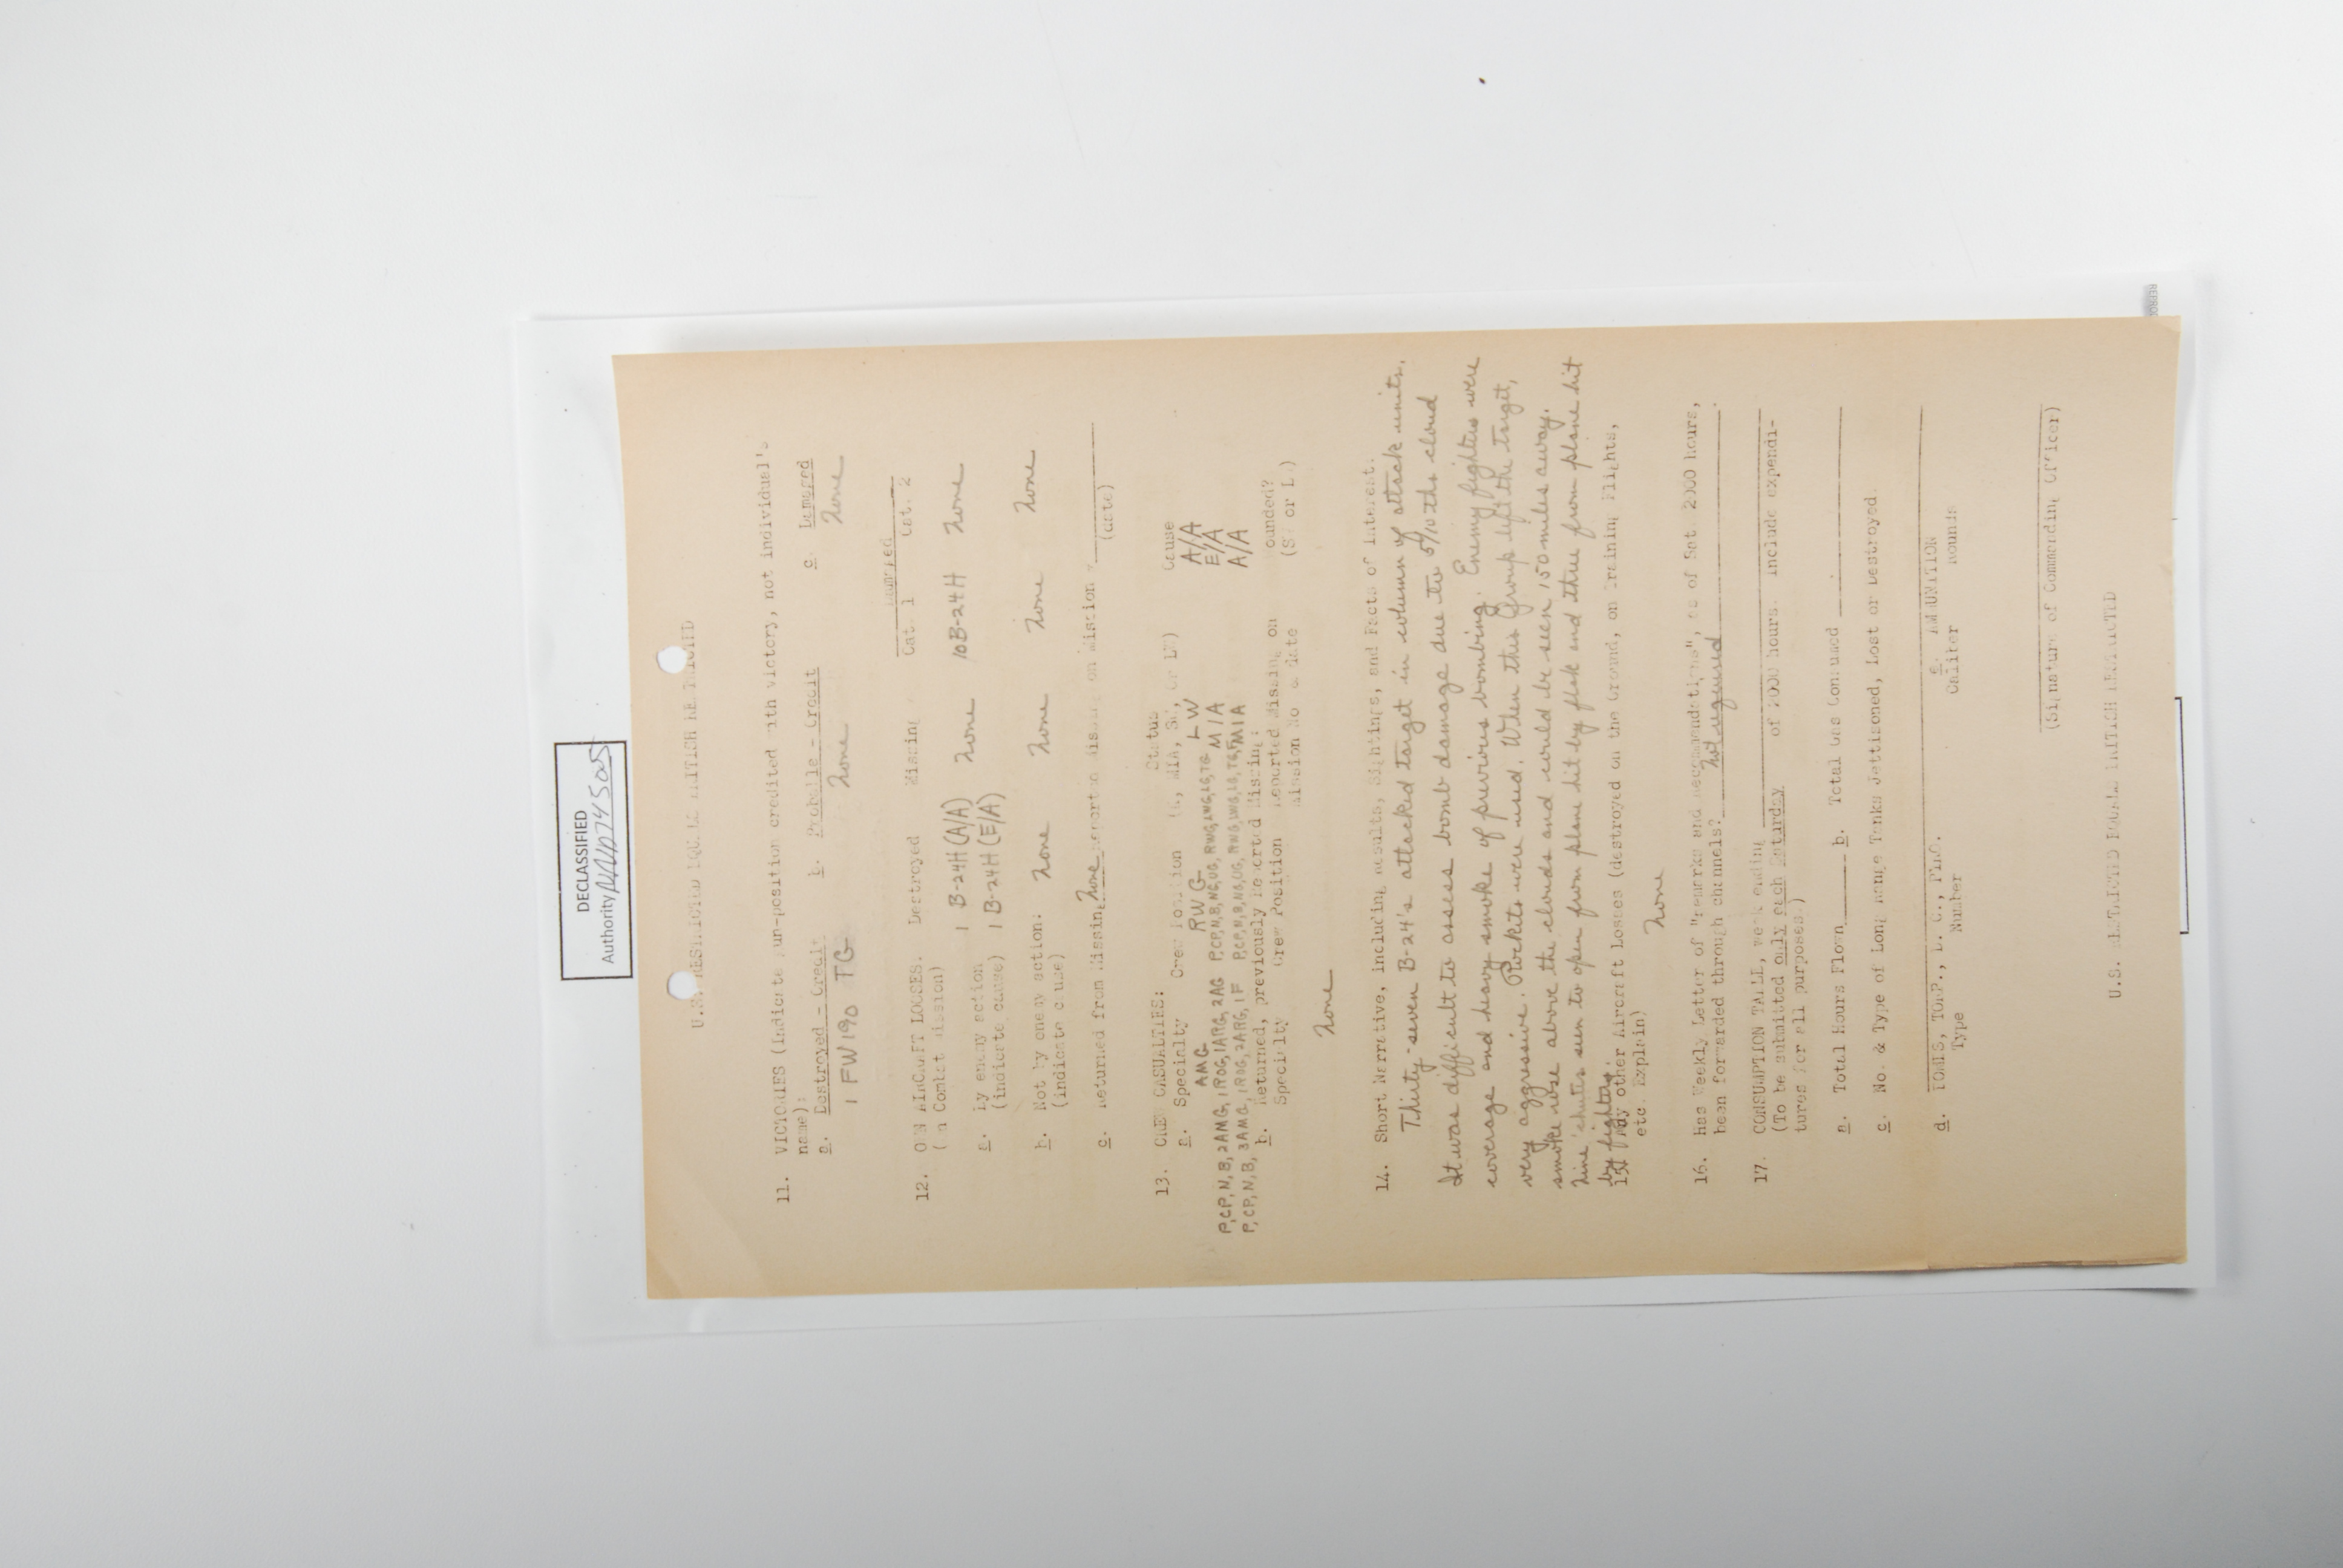 DECLASSIFIED
Authority NND745005
U.S. RESTRICTED EQUALS BRITISH RESTRICTED
11. VICTORIES (Indicate gun-position credited with victory, not individual's
name):
a. Destroyed - Credit b. Probable - Credit c. Damaged
1 FW190 TG None None
12. OWN AIRCRAFT LOSSES. Destroyed Missing Damaged
(on Combat Mission) Cat. 1 Cat. 2
a. By enemy action 1 B-24H (A/A) None 10B-24H None
(indicate cause) 1 B-24H (E/A)
b. Not by enemy action: None None None None
(indicate cause)
c. Returned from Missing, None reported missing on Mission (date)
13. CREW CASUALTIES: Status
a. Specialty Crew Position MIA, Cause
AMG RWG LW A/A
P,CP,N,B,2AMG,1ROG,1ARG,2AG P,CP,N,B,NG,UG,RWG,LWG,LG,TG MIA E/A
P,CP,N,B,3AMG,1ROG,2ARG,1F P,CP,N,B,NG,UG,RWG,LWG,LG,TG,F MIA A/A
b. Returned, previously Reported Missing:
Specialty Crew Position Reported Missing on Wounded?
Mission No & date (SW or LW)
None
14. Short Narrative, including Results, Sightings, and Facts of Interest.
Thirty-seven B-24's attacked target in column of attack units.
It was difficult to assess bomb damage due to 5/10 ths cloud
coverage and heavy smoke of previous bombing. Enemy fighters were
very aggressive. Rockets were used. When this Group left the target,
smoke rose above the clouds and could be seen 150 miles away.
Nine 'chutes seen to open from plane hit by flak and three from plane hit
by fighters.
15. Any other Aircraft Losses (destroyed on the Ground, on Training Flights,
etc. Explain)
None
16. Has Weekly Letter of "remarks and recommendations", as of Sat. 2000 hours,
been forwarded through channels? Not required.
17. CONSUMPTION TABLE, week ending of 2000 hours. include expendi-
(To be submitted only each Saturday
tures for all purposes.)
a. Total Hours Flown b. Total Gas Consumed
c. No. & Type of Long Range Tanks Jettisoned, Lost or Destroyed.
d. BOMBS, TORP., D. C., PYRO. e. AMMUNITION
Type Number Caliber Rounds
(Signature of Commanding Officer)
U.S. RESTRICTED EQUALS BRITISH RESTRICTED